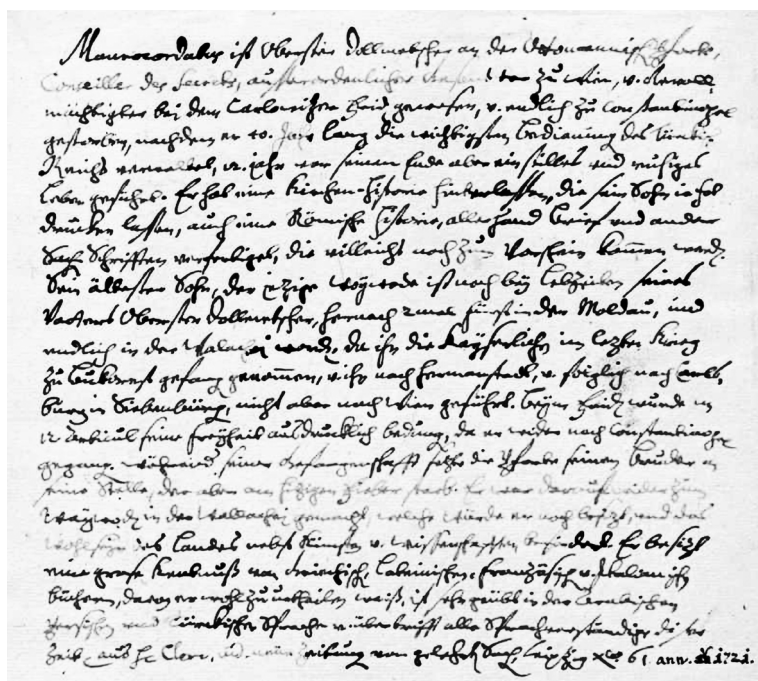 Maurocordatus ist Oberster Dollmetscher an der Ottomannisch. Pforte,
Conseiller des Secrets, ausserordentlicher zu Wien, v. Gevoll
mächtigter bey dem Carlowitzer frid gewesen, v. endlich zu Constantinopel
gestorben, nachdem er 40. Jahr lang die wichtigsten bedienung des
Reichs verwaltet, 2. jahr vor seinem Ende aber ein stilles und ruhiges
Leben geführt. Er hat eine Kirchen-Historie hinterlassen, die sein Sohn hat
drucken lassen, auch eine Römische Historie, allerhand brief und andere
Schrifften verfertiget, die villeicht noch zum Vorschein kommen werd.
Sein ältester Sohn, der itzige Woywode ist noch bey lebzeiten seines
Vatters Oberster Dollmetscher, hernach 2 mal fürst in der Moldau, und
endlich in der Walachei word, da ihn die Kayserliche im letzten Krieg
zu Bukorest gefang genommen, v. ihn nach Hermanstadt, v. folglich nach Carls,
burg in Siebenbürg, nicht aber nach Wien geführt. beym fried wurde in
12 Articul seine freyheit ausdrucklich bedung, da er wider nach Constantinopel
gegang. während seiner Gefangenschafft setzte die Pforte seinen bruder an
seine Stelle, der aber am hizigen fieber starb. Er war darauf wider zum
Waywod in der Wallachei gemacht, welche würde er noch besizt, und das
des Landes nebst Künsten v. Wissenschafften befördert. Er besizt
eine grosse Kentnuß von Griechisch. Lateinischen. Französisch v. Italiänisch
büchern, davon er wohl zu urtheilen weiß, ist sehr geübt in der Arabischen
Persischen und Türckischen Sprache v. übertrifft alle Sprachverständige
Zeit. aus H. Cleric, neue Zeitung von gelehrt. Sach, Leipzig 61. ann. 1721.